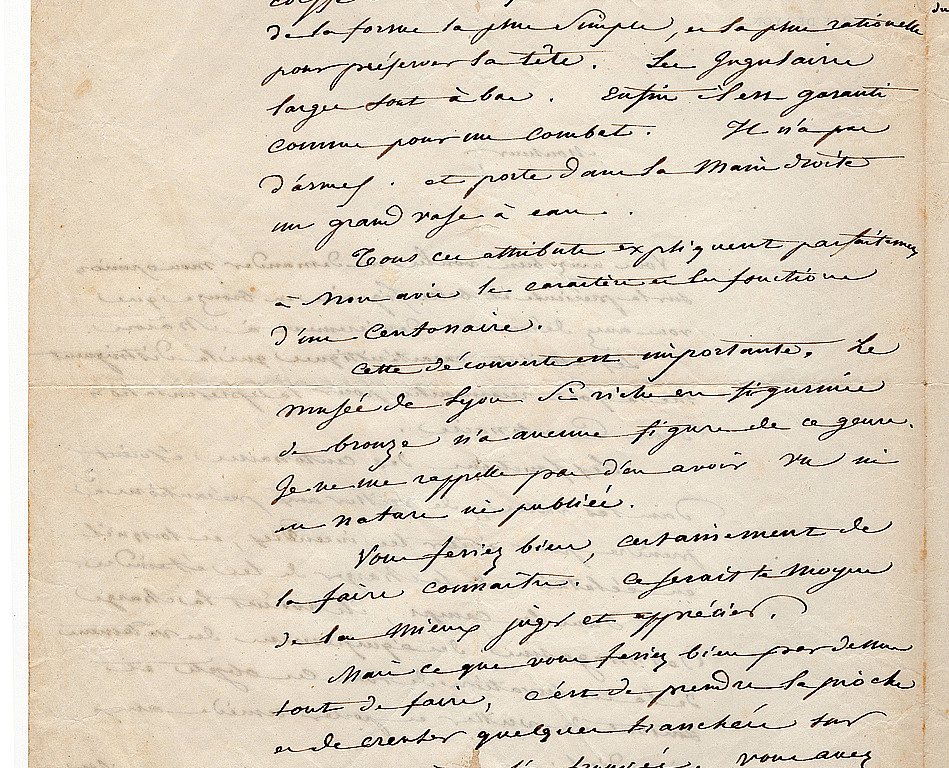 de la forme la plus simple, et la plus rationelle
pour préserver la tête. Les Jugulaires
larges sont à bas. Enfin il est garanti
comme pour un combat. Il n'a pas
d'armes. et porte dans la Main droite
un grand vase à eau.
Tous ces attributs expliquent parfaitement
à Mon avis le caractère et les fonctions
d'un Centonaire.
Cette découverte est importante. Le
musée de Lyon si riche en figurines
de bronze n'a aucune figure de ce genre.
Je ne me rappelle pas d'en avoir vu ni
en nature ni publiée.
Vous feriez bien, certainement de
la faire connaître. Ce serait le Moyen
de la Mieux juger et apprécier.
Mais ce que vous feriez bien par dessus
tout de faire, c'est de prendre la pioche
et de creuser quelques tranchées sur
vous avez
du